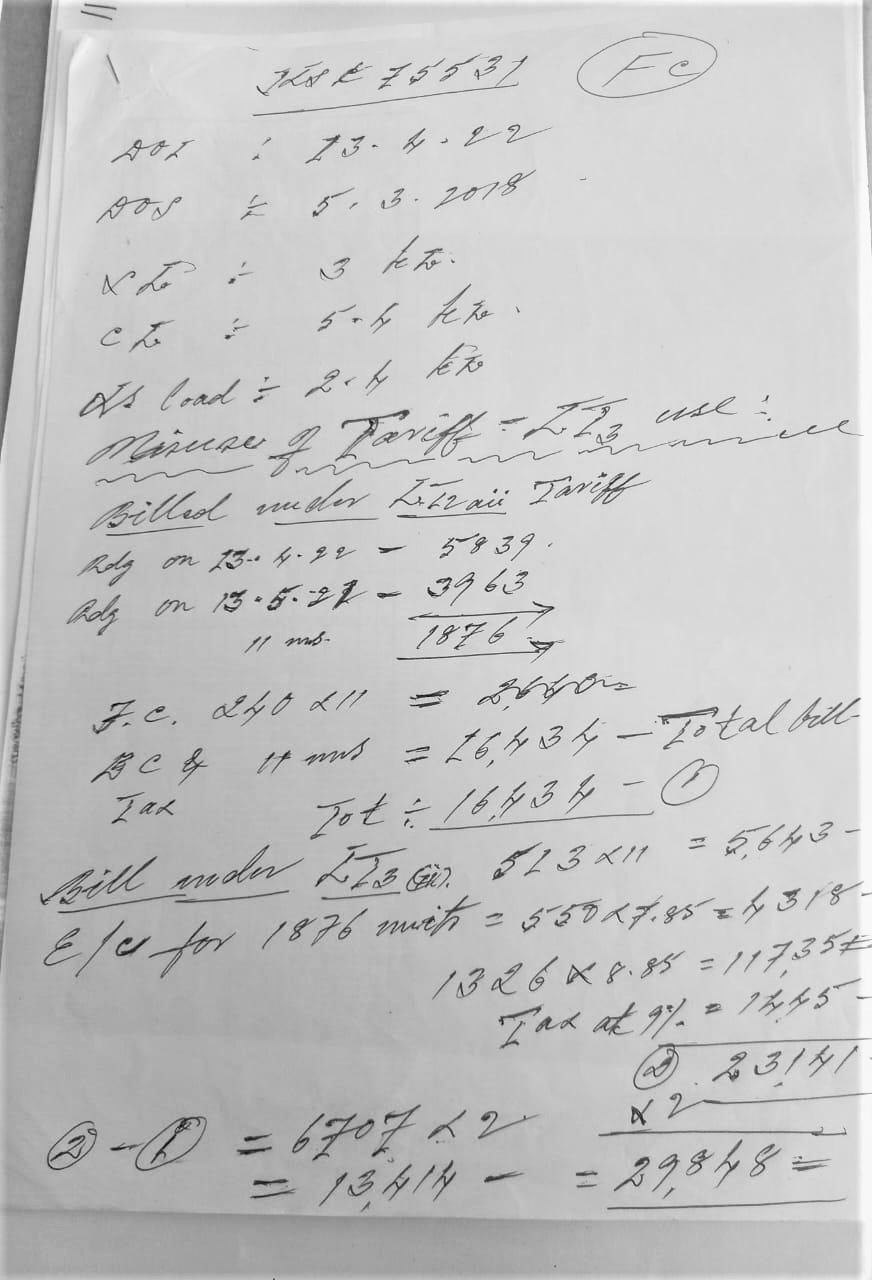 JLSK 75531 Fc
DOI : 13.4.22
DOS ÷ 5.3.2018
÷ 3
÷ 5.4
load ÷ 2.4
Misuse of Tariff - LT3 use :
Billed under LT2aii Tariff
Rdg on 13.4.22 - 5839.
Rdg on 13.5.21 - 3963
11 mts. 1876
F.C. 240 x 11 = 2,640=
BC & 11 mts = 16,434 - Total bill
Tax Tot ÷ 16,434 - ①
Bill under LT3(ii). 513 x 11 = 5,643-
E/C for 1876 units = 550 x 7.85 = 4318-
1326 x 8.85 = 11735
Tax at 9%. = 1445-
② 23,141
x 2
② - ① = 6707 x 2
= 13,414 - = 29,848 =